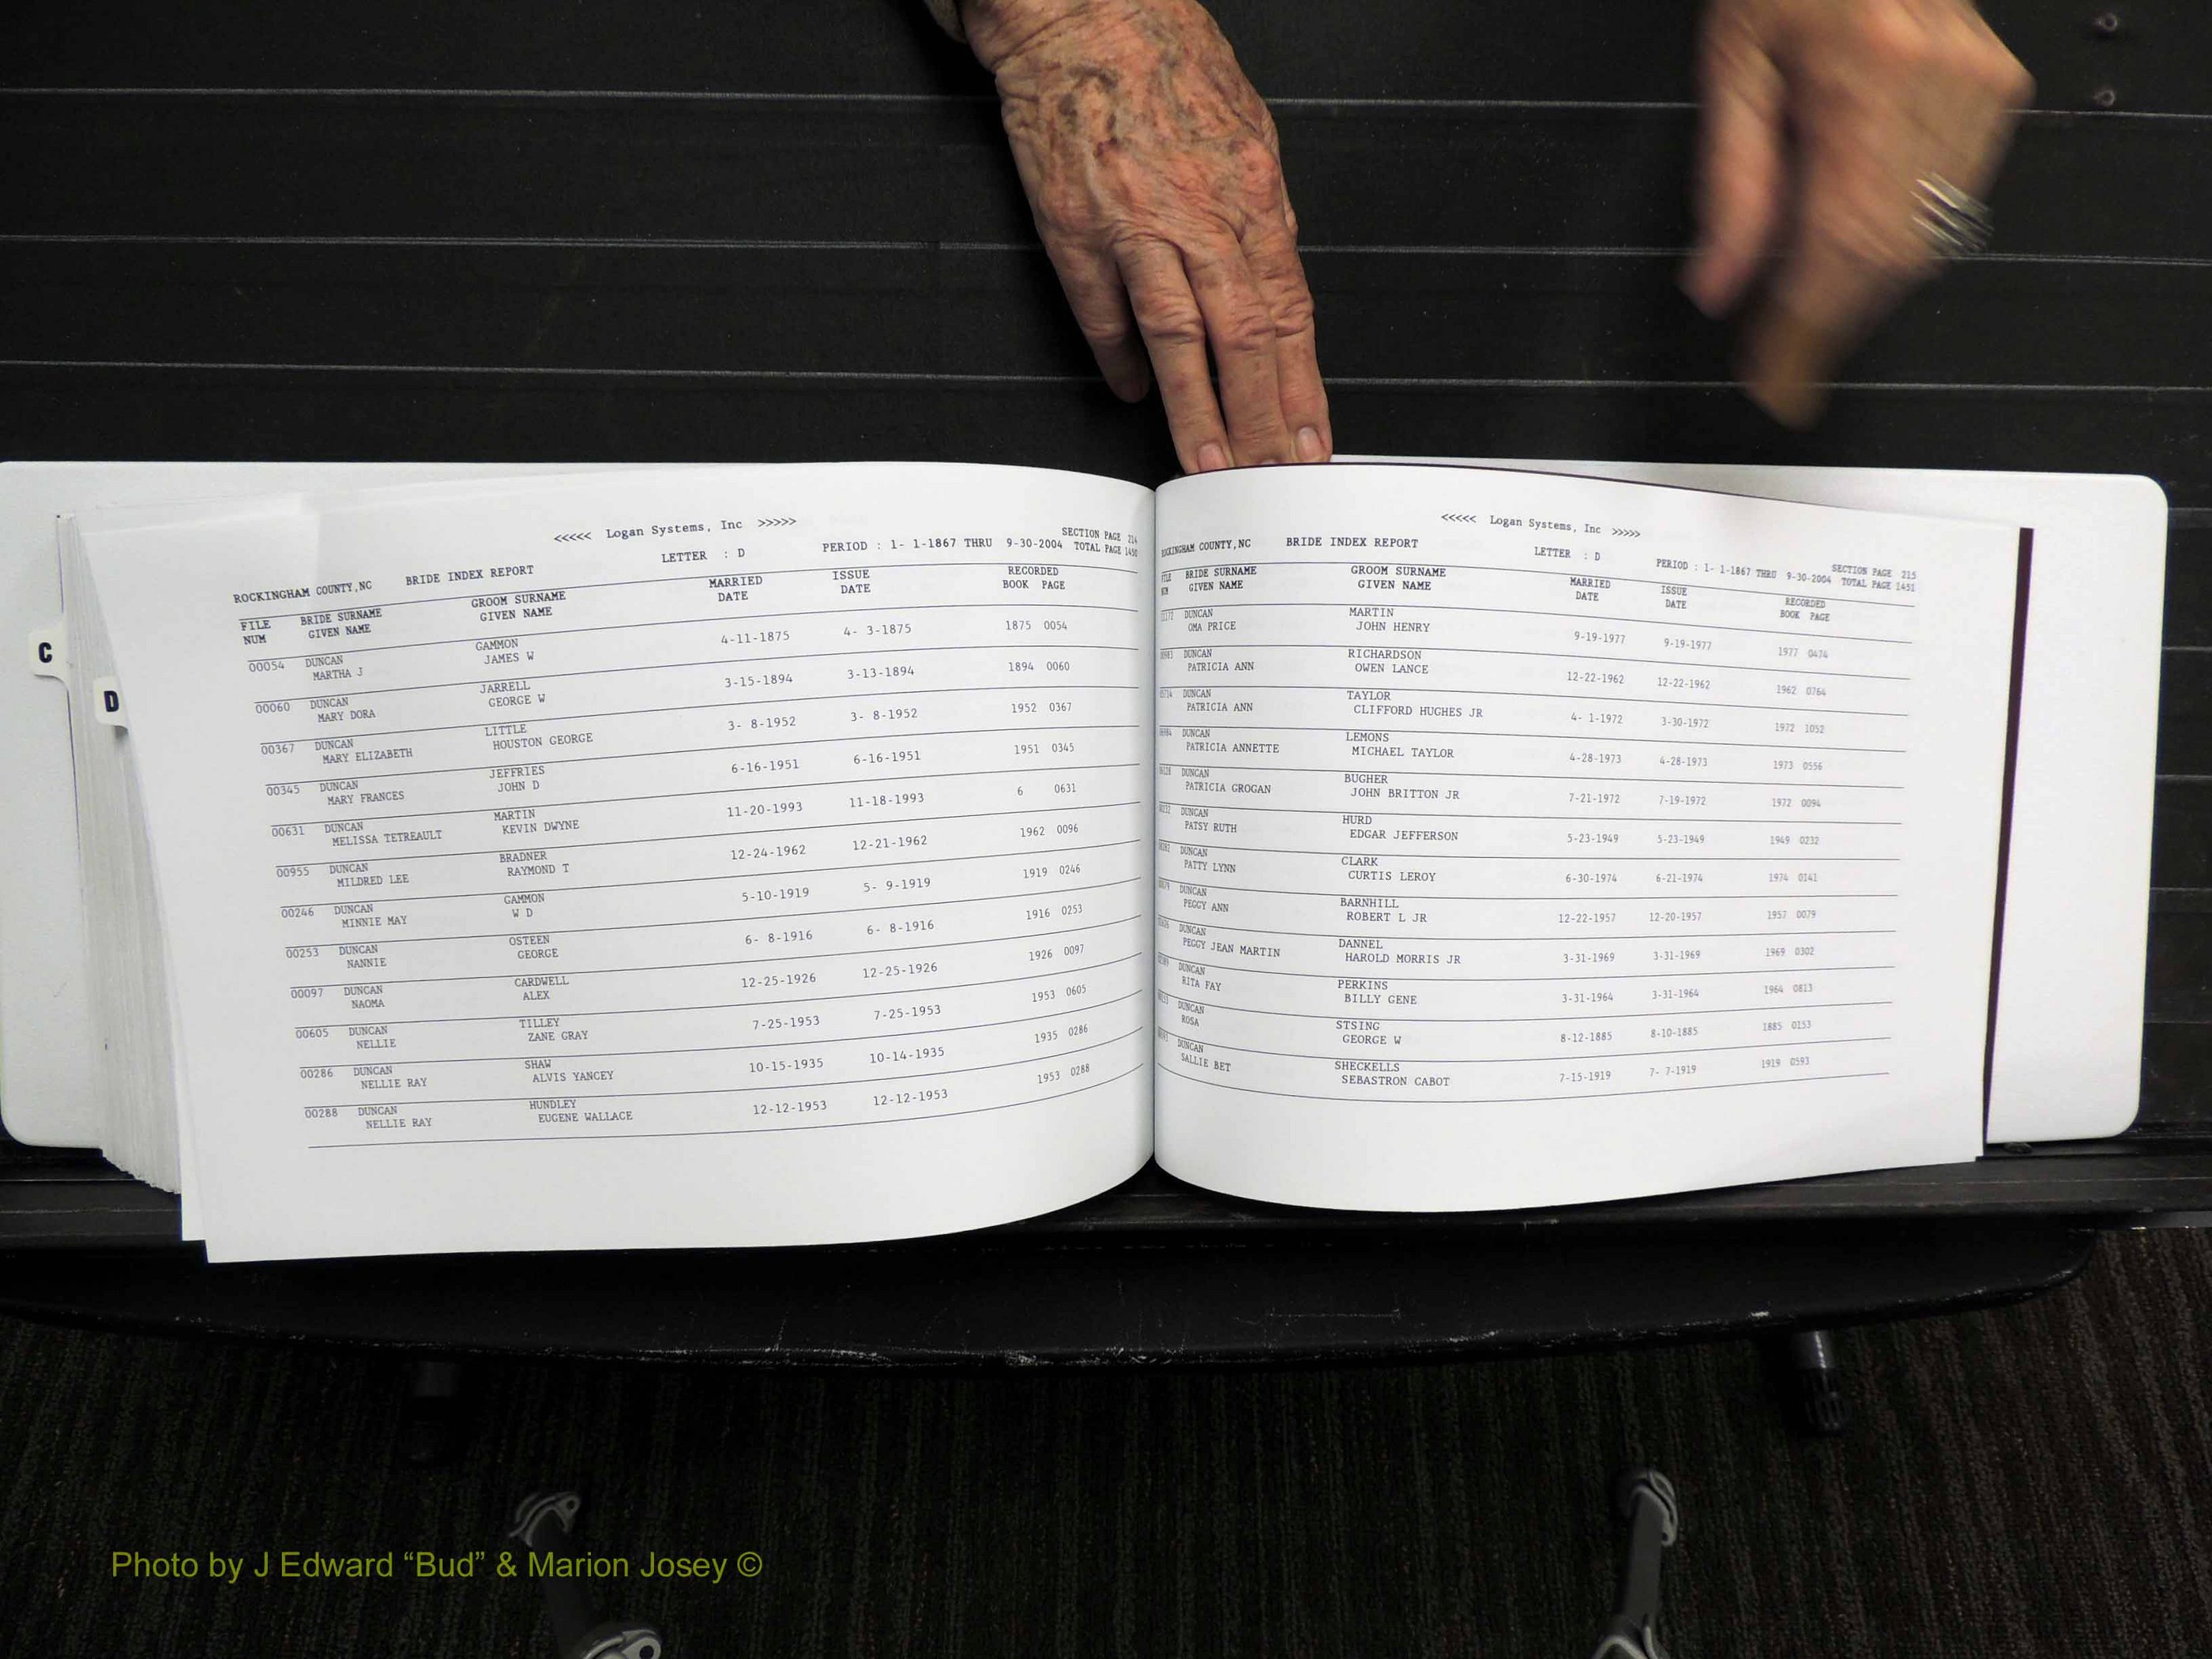 C
D
<<<<< Logan Systems, Inc >>>>>
SECTION PAGE 214
ROCKINGHAM COUNTY,NC BRIDE INDEX REPORT LETTER : D PERIOD : 1- 1-1867 THRU 9-30-2004 TOTAL PAGE 1450
FILE BRIDE SURNAME GROOM SURNAME MARRIED ISSUE RECORDED
NUM GIVEN NAME GIVEN NAME DATE DATE BOOK PAGE
00054 DUNCAN GAMMON 4-11-1875 4- 3-1875 1875 0054
MARTHA J JAMES W
00060 DUNCAN JARRELL 3-15-1894 3-13-1894 1894 0060
MARY DORA GEORGE W
00367 DUNCAN LITTLE 3- 8-1952 3- 8-1952 1952 0367
MARY ELIZABETH HOUSTON GEORGE
00345 DUNCAN JEFFRIES 6-16-1951 6-16-1951 1951 0345
MARY FRANCES JOHN D
00631 DUNCAN MARTIN 11-20-1993 11-18-1993 6 0631
MELISSA TETREAULT KEVIN DWYNE
00955 DUNCAN BRADNER 12-24-1962 12-21-1962 1962 0096
MILDRED LEE RAYMOND T
00246 DUNCAN GAMMON 5-10-1919 5- 9-1919 1919 0246
MINNIE MAY W D
00253 DUNCAN OSTEEN 6- 8-1916 6- 8-1916 1916 0253
NANNIE GEORGE
00097 DUNCAN CARDWELL 12-25-1926 12-25-1926 1926 0097
NAOMA ALEX
00605 DUNCAN TILLEY 7-25-1953 7-25-1953 1953 0605
NELLIE ZANE GRAY
00286 DUNCAN SHAW 10-15-1935 10-14-1935 1935 0286
NELLIE RAY ALVIS YANCEY
00288 DUNCAN HUNDLEY 12-12-1953 12-12-1953 1953 0288
NELLIE RAY EUGENE WALLACE
<<<<< Logan Systems, Inc >>>>>
SECTION PAGE 215
ROCKINGHAM COUNTY,NC BRIDE INDEX REPORT LETTER : D PERIOD : 1- 1-1867 THRU 9-30-2004 TOTAL PAGE 1451
FILE BRIDE SURNAME GROOM SURNAME MARRIED ISSUE RECORDED
GIVEN NAME GIVEN NAME DATE DATE BOOK PAGE
DUNCAN MARTIN 9-19-1977 9-19-1977 1977 0474
OMA PRICE JOHN HENRY
DUNCAN RICHARDSON 12-22-1962 12-22-1962 1962 0764
PATRICIA ANN OWEN LANCE
DUNCAN TAYLOR 4- 1-1972 3-30-1972 1972 1052
PATRICIA ANN CLIFFORD HUGHES JR
DUNCAN LEMONS 4-28-1973 4-28-1973 1973 0556
PATRICIA ANNETTE MICHAEL TAYLOR
DUNCAN BUGHER 7-21-1972 7-19-1972 1972 0094
PATRICIA GROGAN JOHN BRITTON JR
DUNCAN HURD 5-23-1949 5-23-1949 1949 0232
PATSY RUTH EDGAR JEFFERSON
DUNCAN CLARK 6-30-1974 6-21-1974 1974 0141
PATTY LYNN CURTIS LEROY
DUNCAN BARNHILL 12-22-1957 12-20-1957 1957 0079
PEGGY ANN ROBERT L JR
DUNCAN DANNEL 3-31-1969 3-31-1969 1969 0302
PEGGY JEAN MARTIN HAROLD MORRIS JR
DUNCAN PERKINS 3-31-1964 3-31-1964 1964 0813
RITA FAY BILLY GENE
DUNCAN STSING 8-12-1885 8-10-1885 1885 0153
ROSA GEORGE W
DUNCAN SHECKELLS 7-15-1919 7- 7-1919 1919 0593
SALLIE BET SEBASTRON CABOT
Photo by J Edward “Bud” & Marion Josey ©